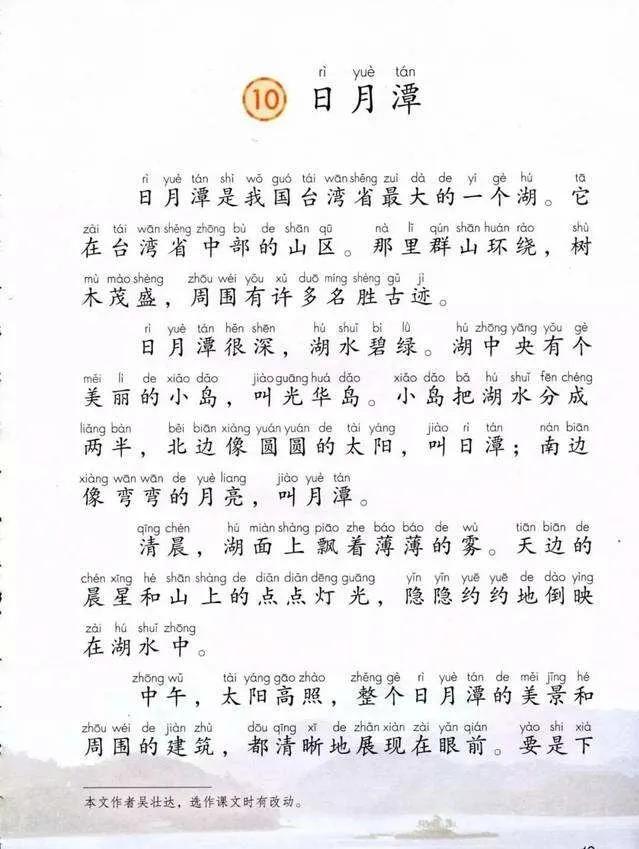 rì yuè tán
10 日月潭
rì yuè tán shì wǒ guó tái wān shěng zuì dà de yí gè hú tā
日月潭是我国台湾省最大的一个湖。它
zài tái wān shěng zhōng bù de shān qū nà lǐ qún shān huán rào shù
在台湾省中部的山区。那里群山环绕，树
mù mào shèng zhōu wéi yǒu xǔ duō míng shèng gǔ jì
木茂盛，周围有许多名胜古迹。
rì yuè tán hěn shēn hú shuǐ bì lǜ hú zhōng yāng yǒu gè
日月潭很深，湖水碧绿。湖中央有个
měi lì de xiǎo dǎo jiào guāng huá dǎo xiǎo dǎo bǎ hú shuǐ fēn chéng
美丽的小岛，叫光华岛。小岛把湖水分成
liǎng bàn běi biān xiàng yuán yuán de tài yáng jiào rì tán nán biān
两半，北边像圆圆的太阳，叫日潭；南边
xiàng wān wān de yuè liang jiào yuè tán
像弯弯的月亮，叫月潭。
qīng chén hú miàn shàng piāo zhe báo báo de wù tiān biān de
清晨，湖面上飘着薄薄的雾。天边的
chén xīng hé shān shàng de diǎn diǎn dēng guāng yǐn yǐn yuē yuē de dào yìng
晨星和山上的点点灯光，隐隐约约地倒映
zài hú shuǐ zhōng
在湖水中。
zhōng wǔ tài yáng gāo zhào zhěng gè rì yuè tán de měi jǐng hé
中午，太阳高照，整个日月潭的美景和
zhōu wéi de jiàn zhù dōu qīng xī de zhǎn xiàn zài yǎn qián yào shi xià
周围的建筑，都清晰地展现在眼前。要是下
本文作者吴壮达，选作课文时有改动。